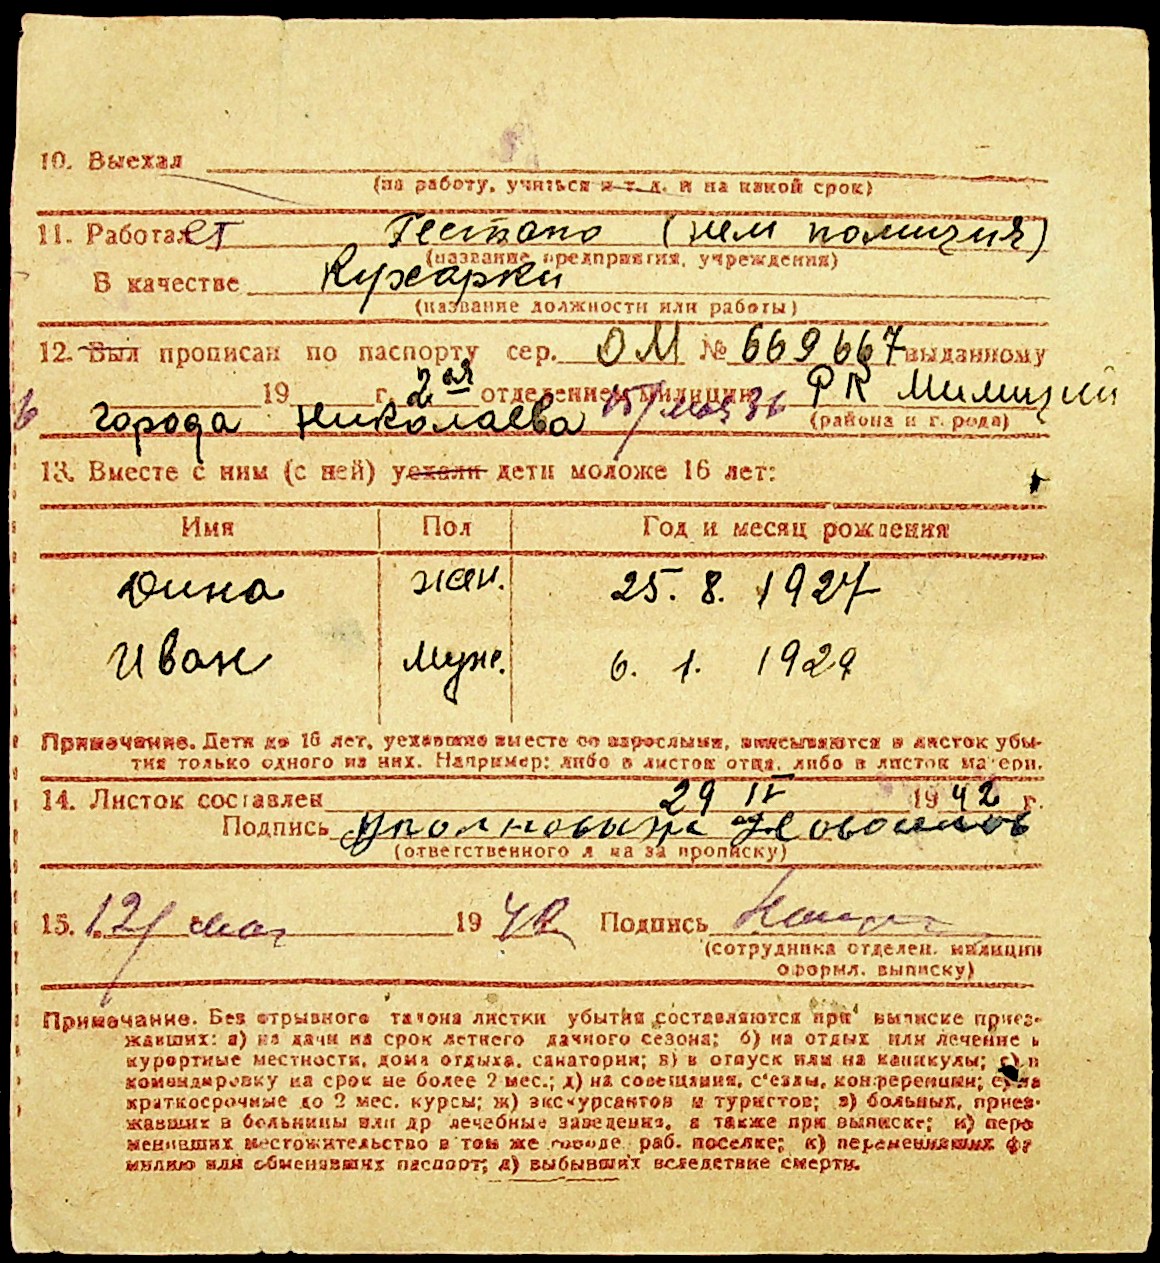 10. Выехал
(на работу, учиться и т. д. и на какой срок)
11. Работает Гестапо (нем полиция)
(название предприятия, учреждения)
В качестве Кухарки
(название должности или работы)
12. Был прописан по паспорту сер. ОМ № 669667 выданному
19 г. 2 ой отделением милиции РК Милиции
города Николаева 15/мая 36
(района и города)
13. Вместе с ним (с ней) уехали дети моложе 16 лет:
Имя Пол Год и месяц рождения
Дина жен. 25. 8. 1927
Иван муж. 6. 1. 1929
Примечание. Дети до 16 лет, уехавшие вместе со взрослыми, вписываются в листок убы-
тия только одного из них. Например: либо в листок отца, либо в листок матери.
14. Листок составлен 29 IV 1942 г.
Подпись
(ответственного л на за прописку)
15. 12/ мая 1942 Подпись
(сотрудника отделен. милиции
оформл. выписку)
Примечание. Без отрывного талона листки убытия составляются при выписке приез-
жавших: а) на дачи на срок летнего дачного сезона; б) на отдых или лечение в
курортные местности, дома отдыха, санатории; в) в отпуск или на каникулы; г) в
командировку на срок не более 2 мес.; д) на совещания, с'езды, конференции; е) на
краткосрочные до 2 мес. курсы; ж) экскурсантов и туристов; з) больных, приез-
жавших в больницы или др лечебные заведения, а также при выписке; и) пере
менивших местожительство в том же городе, раб. поселке; к) переменивших фа
милию или обменявших паспорт; л) выбывших вследствие смерти.